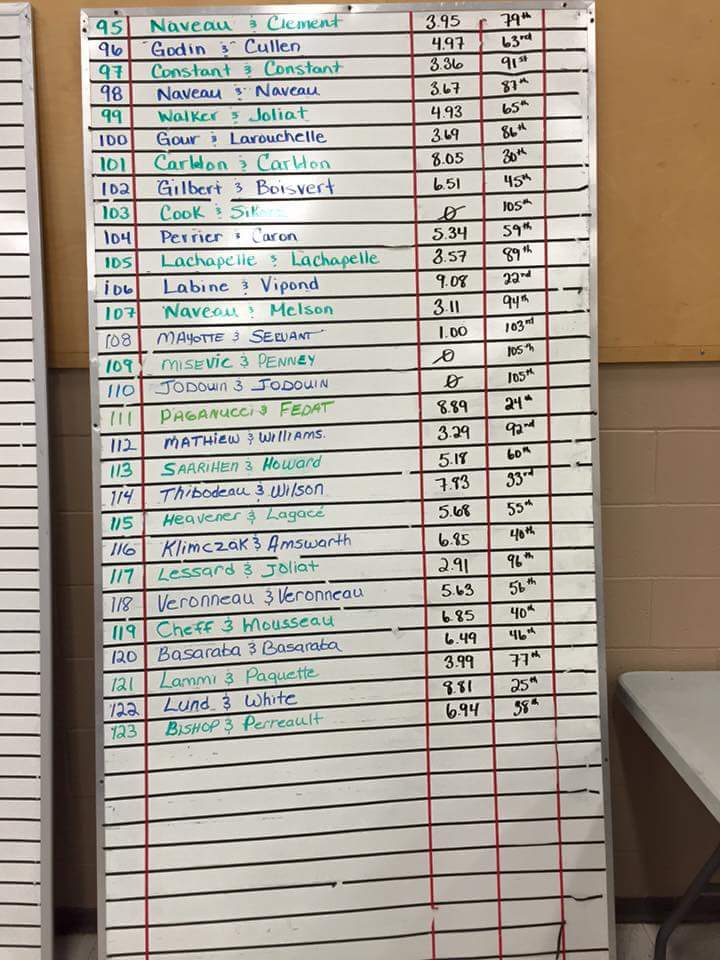 95 Naveau & Clement 3.95 79th
96 Godin & Cullen 4.97 63rd
97 Constant & Constant 3.36 91st
98 Naveau & Naveau 3.67 87th
99 Walker & Joliat 4.93 65th
100 Gour & Larouchelle 3.69 86th
101 Carldon & Carldon 8.05 30th
102 Gilbert & Boisvert 6.51 45th
103 Cook & Ø 105th
104 Perrier & Caron 5.34 59th
105 Lachapelle & Lachapelle 3.57 89th
106 Labine & Vipond 9.08 22nd
107 Naveau & Melson 3.11 94th
108 MAYOTTE & SERVANT 1.00 103rd
109 MISEVIC & PENNEY Ø 105th
110 JODOUIN & JODOUIN Ø 105th
111 PAGANUCCI & FEDAT 8.89 24th
112 MATHIEW & Williams. 3.29 92nd
113 SAARIHEN & Howard 5.18 60th
114 Thibodeau & Wilson 7.83 33rd
115 Heavener & Lagacé 5.68 55th
116 Klimczak & Amswarth 6.85 40th
117 Lessard & Joliat 2.91 96th
118 Veronneau & Veronneau 5.63 56th
119 Cheff & Mousseau 6.85 40th
120 Basaraba & Basaraba 6.49 46th
121 Lammi & Paquette 3.99 77th
122 Lund & White 8.81 25th
123 BISHOP & Perreault 6.94 38th